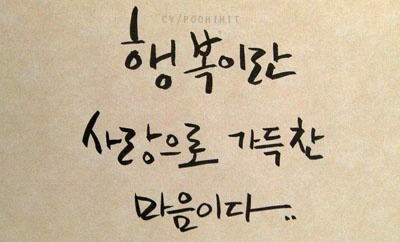 CY/POOHIHIT
행복이란
사랑으로 가득찬
마음이다..